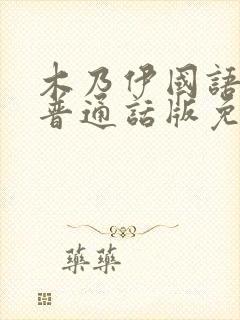 木乃伊國語
普通話版免
藥藥